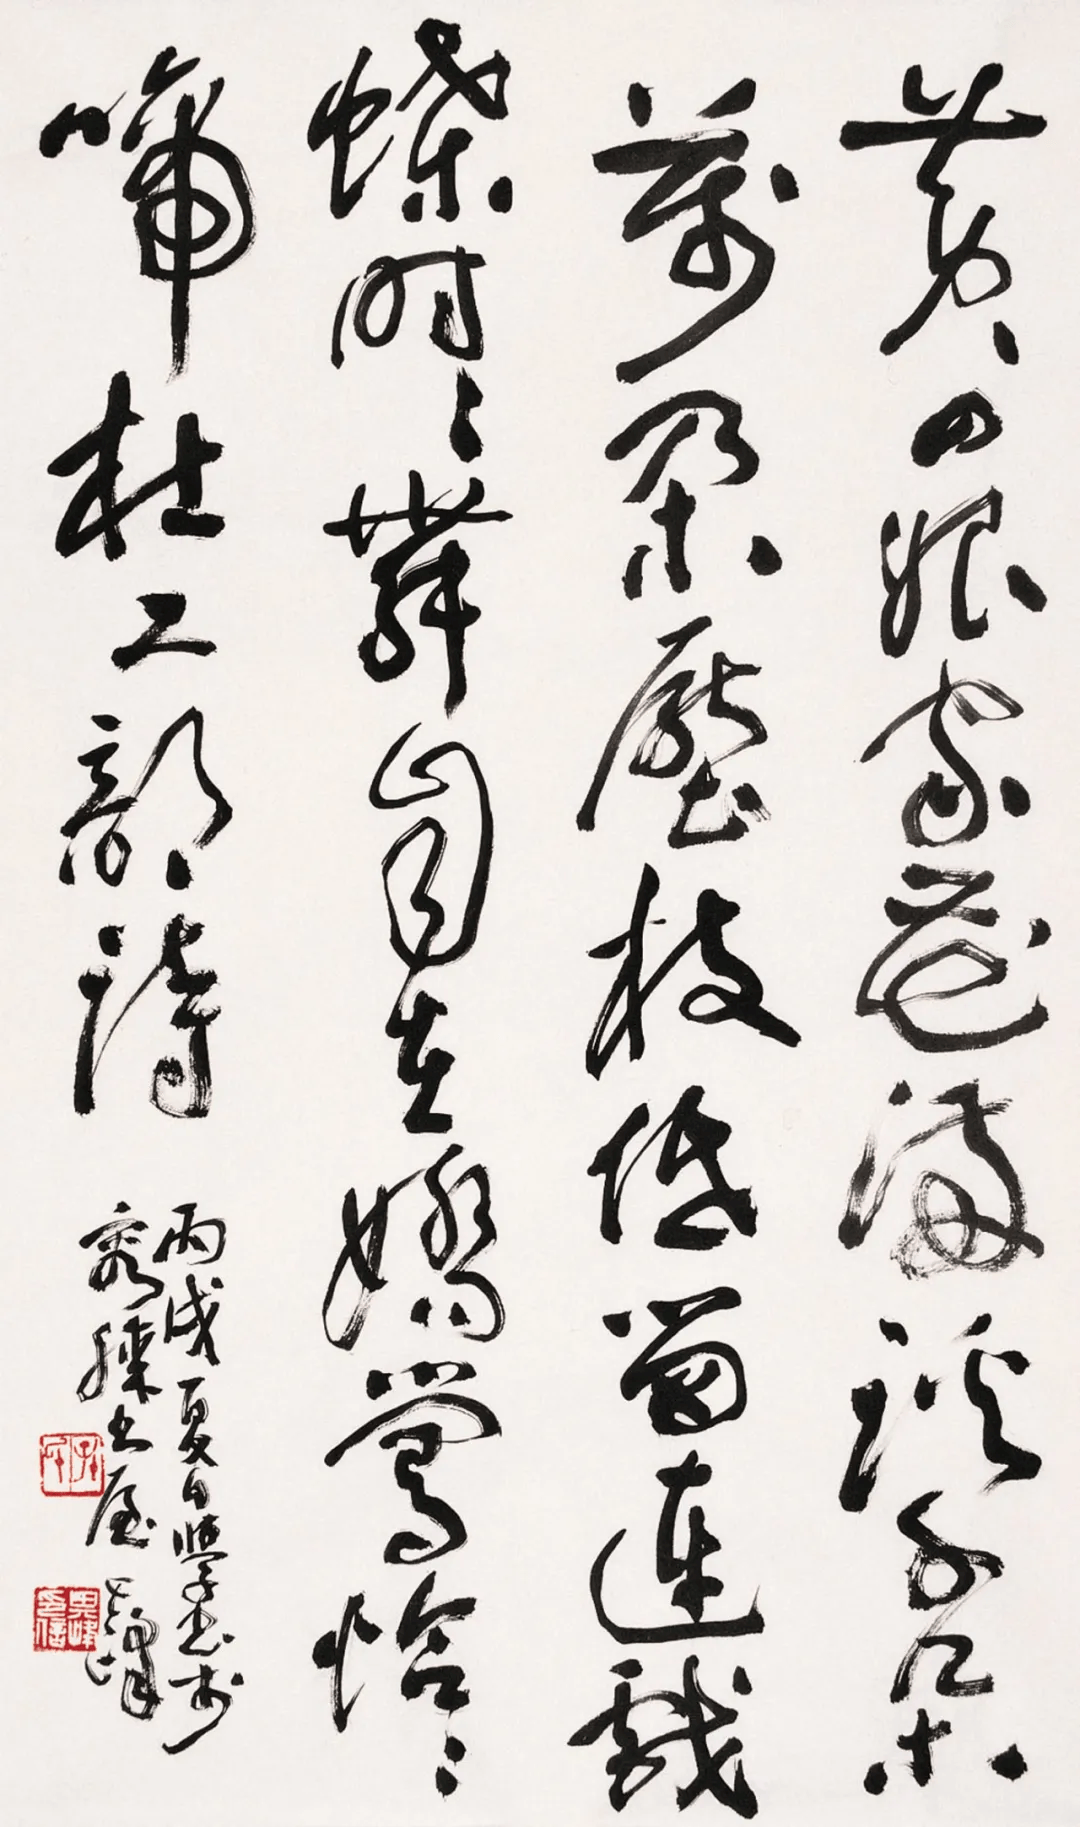 黃四娘家花滿蹊千朵
萬朵壓枝低留連戲
蝶時々舞自在嬌鶯恰々
啼杜工部詩
丙戌夏日學書於
書屋